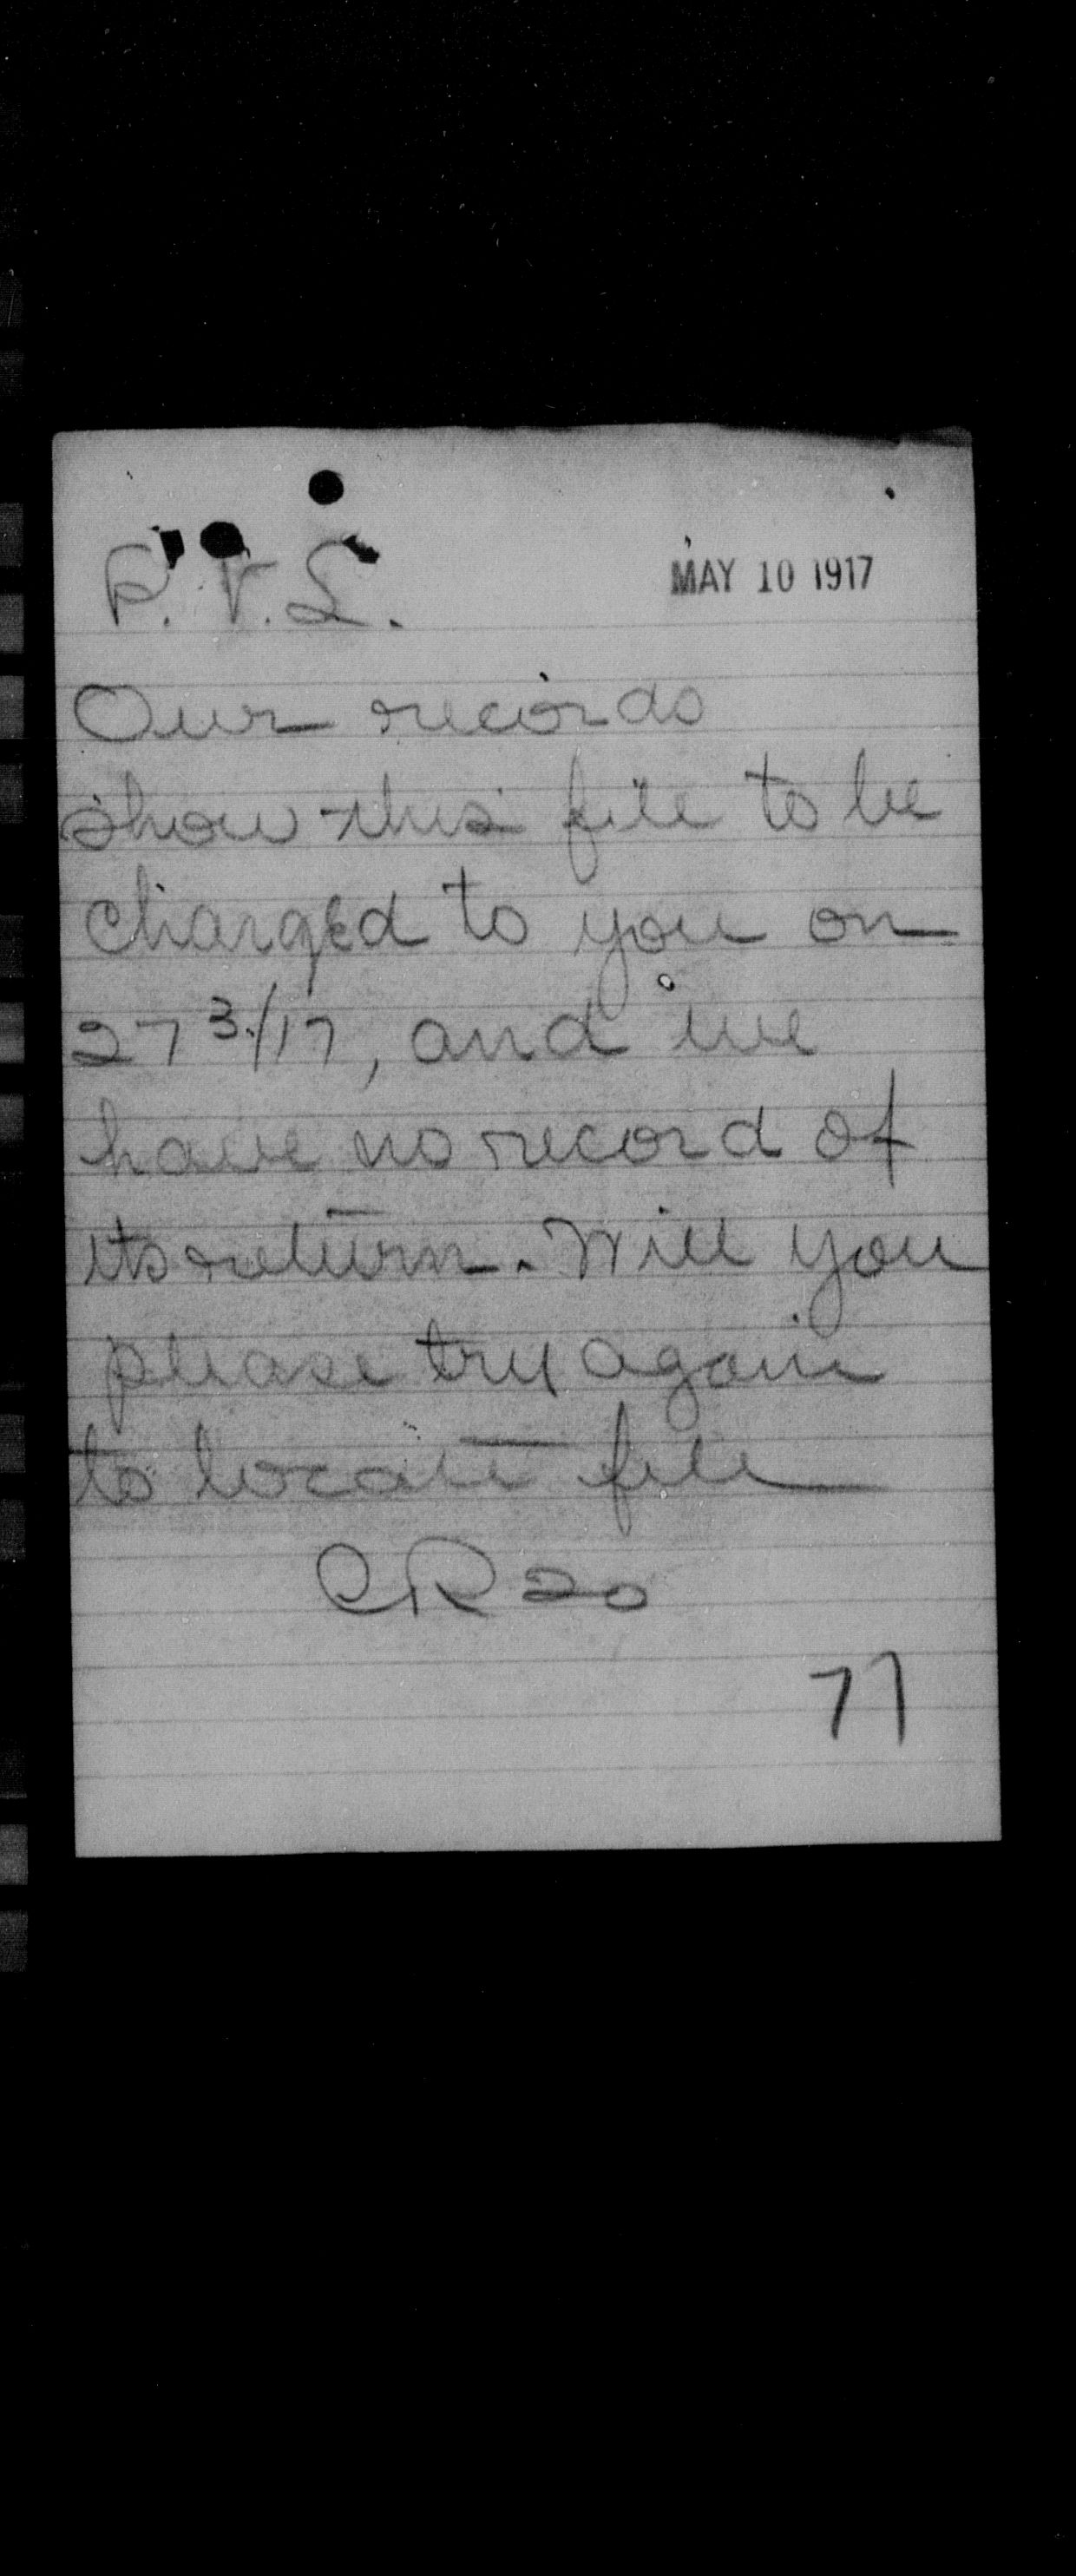 P. V. L.
MAY 10 1917
Our records
show this file to be
charged to you on
27 3/17, and we
have no record of
its return. Will you
please try again
to locate file
CR 20
77